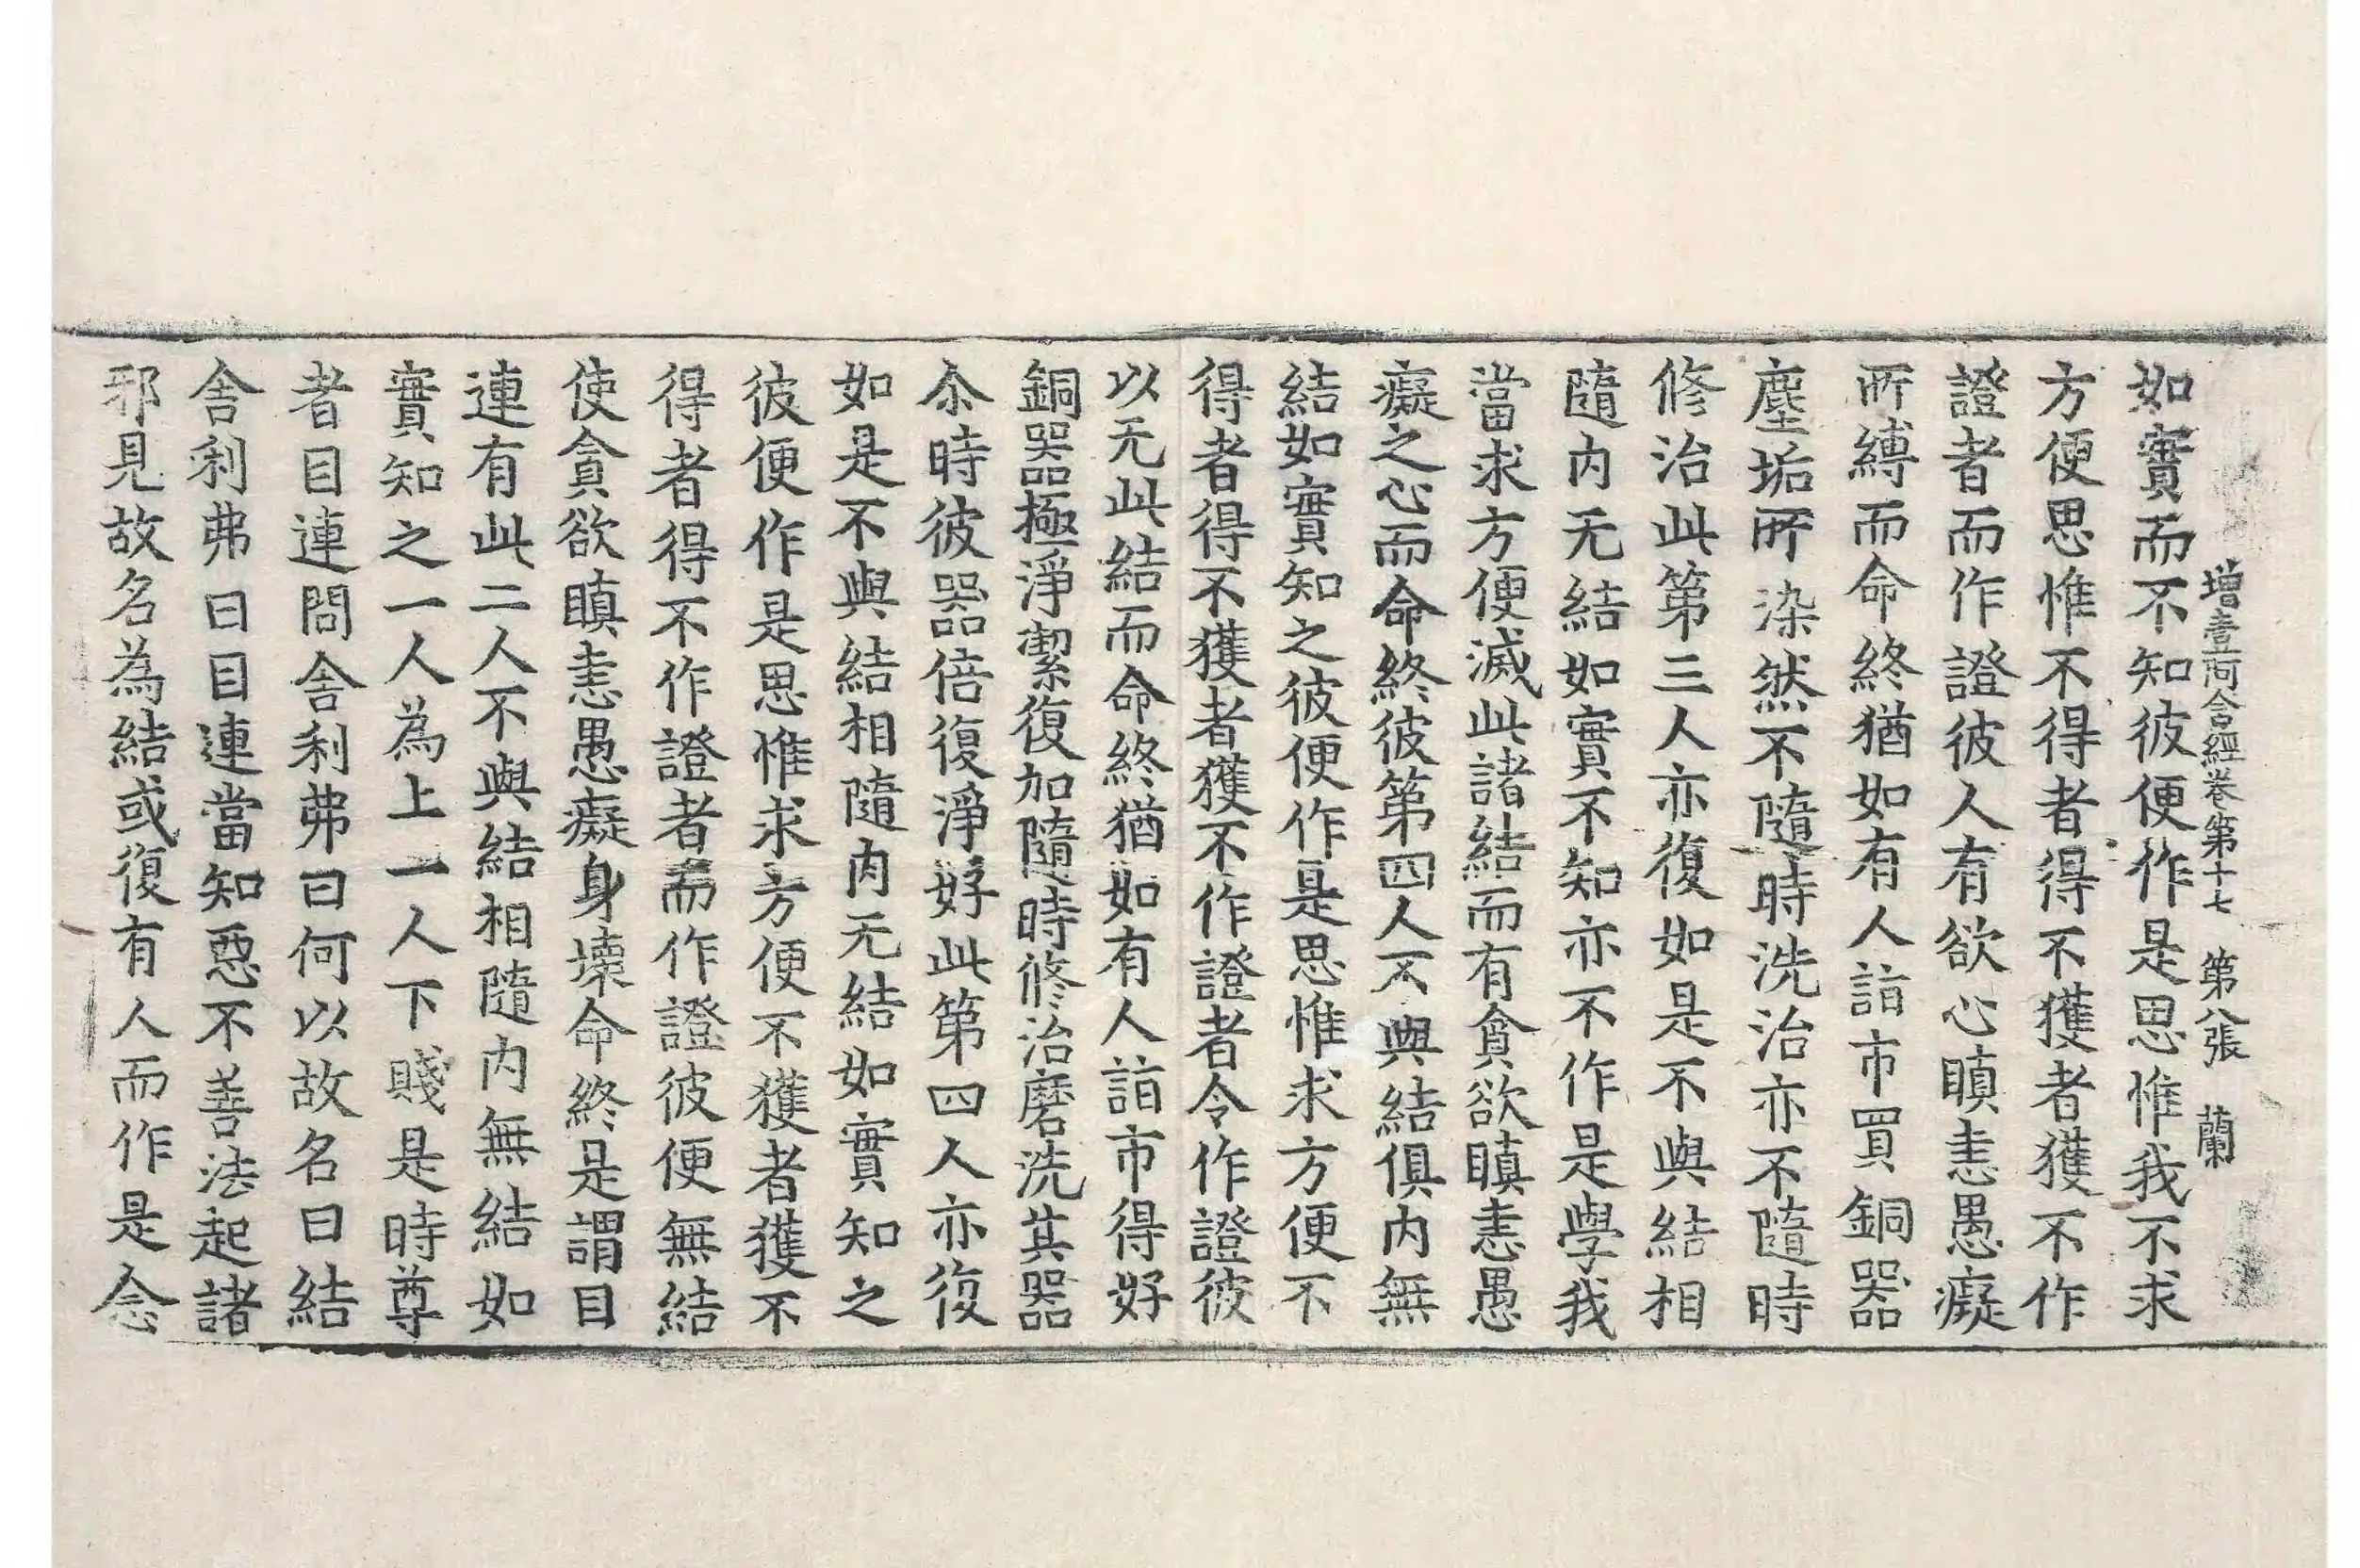 增壹阿含經卷第十七 第八張 蘭
如實而不知彼便作是思惟我不求
方便思惟不得者得不獲者獲不作
證者而作證彼人有欲心瞋恚愚癡
所縛而命終猶如有人詣市買銅器
塵垢所染然不隨時洗治亦不隨時
修治此第三人亦復如是不與結相
隨內无結如實不知亦不作是學我
當求方便滅此諸結而有貪欲瞋恚愚
癡之心而命終彼第四人不與結俱內無
結如實知之彼便作是思惟求方便不
得者得不獲者獲不作證者令作證彼
以无此結而命終猶如有人詣市得好
銅器極淨潔復加隨時修治磨洗其器
尒時彼器倍復淨好此第四人亦復
如是不與結相隨內无結如實知之
彼便作是思惟求方便不獲者獲不
得者得不作證者而作證彼便無結
使貪欲瞋恚愚癡身壞命終是謂目
連有此二人不與結相隨內無結如
實知之一人為上一人下賤是時尊
者目連問舍利弗曰何以故名曰結
舍利弗曰目連當知惡不善法起諸
邪見故名為結或復有人而作是念